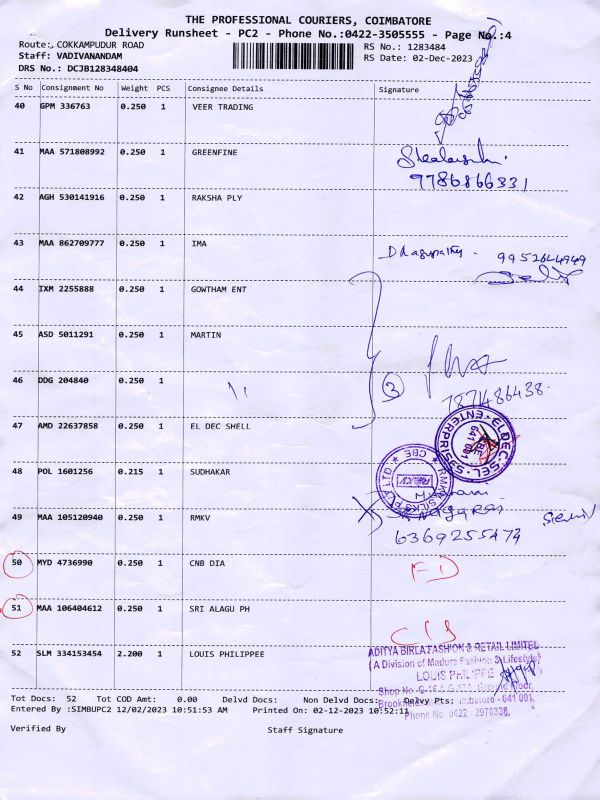 THE PROFESSIONAL COURIERS, COIMBATORE
Delivery Runsheet - PC2 - Phone No.:0422-3505555 - Page No.:4
Route: COKKAMPUDUR ROAD
RS No.: 1283484
Staff: VADIVANANDAM
RS Date: 02-Dec-2023
DRS No.: DCJB128348404
S No Consignment No Weight PCS Consignee Details Signature
40 GPM 336763 0.250 1 VEER TRADING
41 MAA 571808992 0.250 1 GREENFINE
9786866331
42 AGH 530141916 0.250 1 RAKSHA PLY
43 MAA 862709777 0.250 1 IMA
9952644949
44 IXM 2255888 0.250 1 GOWTHAM ENT
45 ASD 5011291 0.250 1 MARTIN
46 DDG 204840 0.250 1
3
7871486438.
47 AMD 22637858 0.250 1 EL DEC SHELL
48 POL 1601256 0.215 1 SUDHAKAR
49 MAA 105120940 0.250 1 RMKV
6369255474
50 MYD 4736990 0.250 1 CNB DIA
51 MAA 106404612 0.250 1 SRI ALAGU PH
52 SLM 334153454 2.200 1 LOUIS PHILIPPEE
ADITYA BIRLA FASHION & RETAIL LIMITEL
(A Division of Madura Fashion & Lifestyle)
LOUIS PHILIPPE
Ground Floor,
641 001.
Phone No 0422 - 2970338.
Tot Docs: 52 Tot COD Amt: 0.00 Delvd Docs: Non Delvd Docs: Delvy Pts:
Entered By :SIMBUPC2 12/02/2023 10:51:53 AM Printed On: 02-12-2023 10:52:11
Verified By Staff Signature